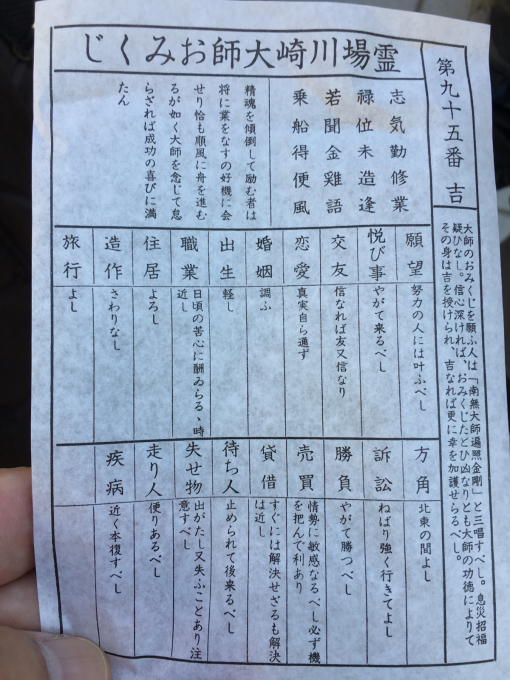 第九十五番 吉
大師のおみくじを願ふ人は「南無大師遍照金剛」と三唱すべし。息災招福
疑ひなし。信心深ければ、おみくじたとひ凶なりとも大師の功徳によりて
その身は吉を授けられ、吉なれば更に幸を加護せらるべし。
霊場川崎大師おみくじ
志気勤修業
禄位未造逢
若聞金雞語
乗船得便風
精魂を傾倒して励む者は
将に業をなすの好機に会
せり恰も順風に舟を進む
るが如く大師を念じて怠
らざれば成功の喜びに満
たん
願望 努力の人には叶ふべし
悦び事 やがて来るべし
交友 信なれば友又信なり
恋愛 真実自ら通ず
婚姻 調ふ
出生 軽し
職業 日頃の苦心に酬ゐらる、時
近し
住居 よろし
造作 さわりなし
旅行 よし
方角 北東の間よし
訴訟 ねばり強く行きてよし
勝負 やがて勝つべし
売買 情勢に敏感なるべし必ず機
を把んで利あり
貸借 すぐには解決せざるも解決
は近し
待ち人 止められて後来るべし
失せ物 出がたし又失ふことあり注
意すべし
走り人 便りあるべし
疾病 近く本復すべし